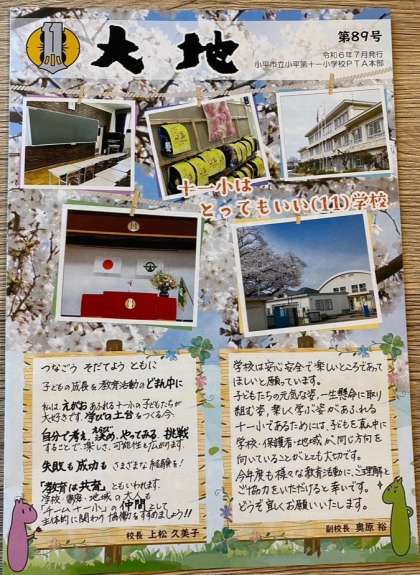 大地
第89号
令和6年7月発行
小平市立小平第十一小学校PTA本部
十一小は
とってもいい(11)学校
つなごう そだてよう ともに
子どもの成長を教育活動のど真ん中に
私は、えがおあふれる十一小の子どもたちが
大好きです。学びの土台をつくる今、
自分で考え、決め、やってみる、挑戦
することで、楽しさ、可能性も広がります。
失敗も成功も さまざまな経験を!
「教育は共育」ともいわれます。
学校・家庭・地域の大人も
「チーム十一小」の仲間として
主体的に関わり、協働をすすめましょう!!
校長 上松 久美子
学校は安心安全で楽しいところであって
ほしいと願っています。
子どもたちの元気な姿、一生懸命に取り
組む姿、楽しく学ぶ姿があふれる
十一小であるためには、子どもを真ん中に
学校・保護者・地域が同じ方向を
向いていることがとても大切です。
今年度も様々な教育活動に、ご理解と
ご協力をいただけると幸いです。
どうぞ宜しくお願いいたします。
副校長 奥原 裕